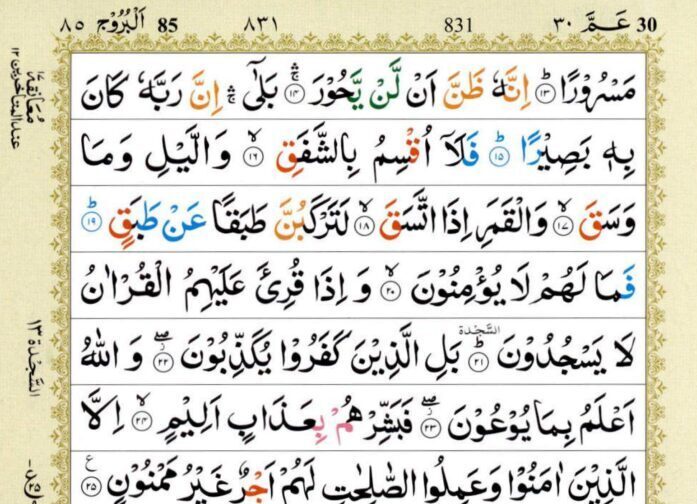 30 عَمَّ ٣٠ 831 ٨٣١ 85 اَلْبُرُوْج ٨٥
مَسْرُوْرًا ۝١٣ؕ اِنَّهٗ ظَنَّ اَنْ لَّنْ يَّحُوْرَ ۝١٤ۚۛ بَلٰٓى ۚۛ اِنَّ رَبَّهٗ كَانَ
بِهٖ بَصِيْرًا ۝١٥ؕ فَلَاۤ اُقْسِمُ بِالشَّفَقِ ۝١٦ۙ وَالَّيْلِ وَمَا
وَسَقَ ۝١٧ۙ وَالْقَمَرِ اِذَا اتَّسَقَ ۝١٨ۙ لَتَرْكَبُنَّ طَبَقًا عَنْ طَبَقٍ ۝١٩ؕ
فَمَا لَهُمْ لَا يُؤْمِنُوْنَ ۝٢٠ۙ وَ اِذَا قُرِئَ عَلَيْهِمُ الْقُرْاٰنُ
لَا يَسْجُدُوْنَ ۝٢١ؕ السَّجْدَة بَلِ الَّذِيْنَ كَفَرُوْا يُكَذِّبُوْنَ ۝٢٢ۖ وَ اللّٰهُ
اَعْلَمُ بِمَا يُوْعُوْنَ ۝٢٣ۖ فَبَشِّرْهُمْ بِعَذَابٍ اَلِيْمٍ ۝٢٤ۙ اِلَّا
الَّذِيْنَ اٰمَنُوْا وَعَمِلُوا الصّٰلِحٰتِ لَهُمْ اَجْرٌ غَيْرُ مَمْنُوْنٍ ۝٢٥ ع
معانقة ١٧
عند المتاخرين ١٢
السَّجْدَة ١٣